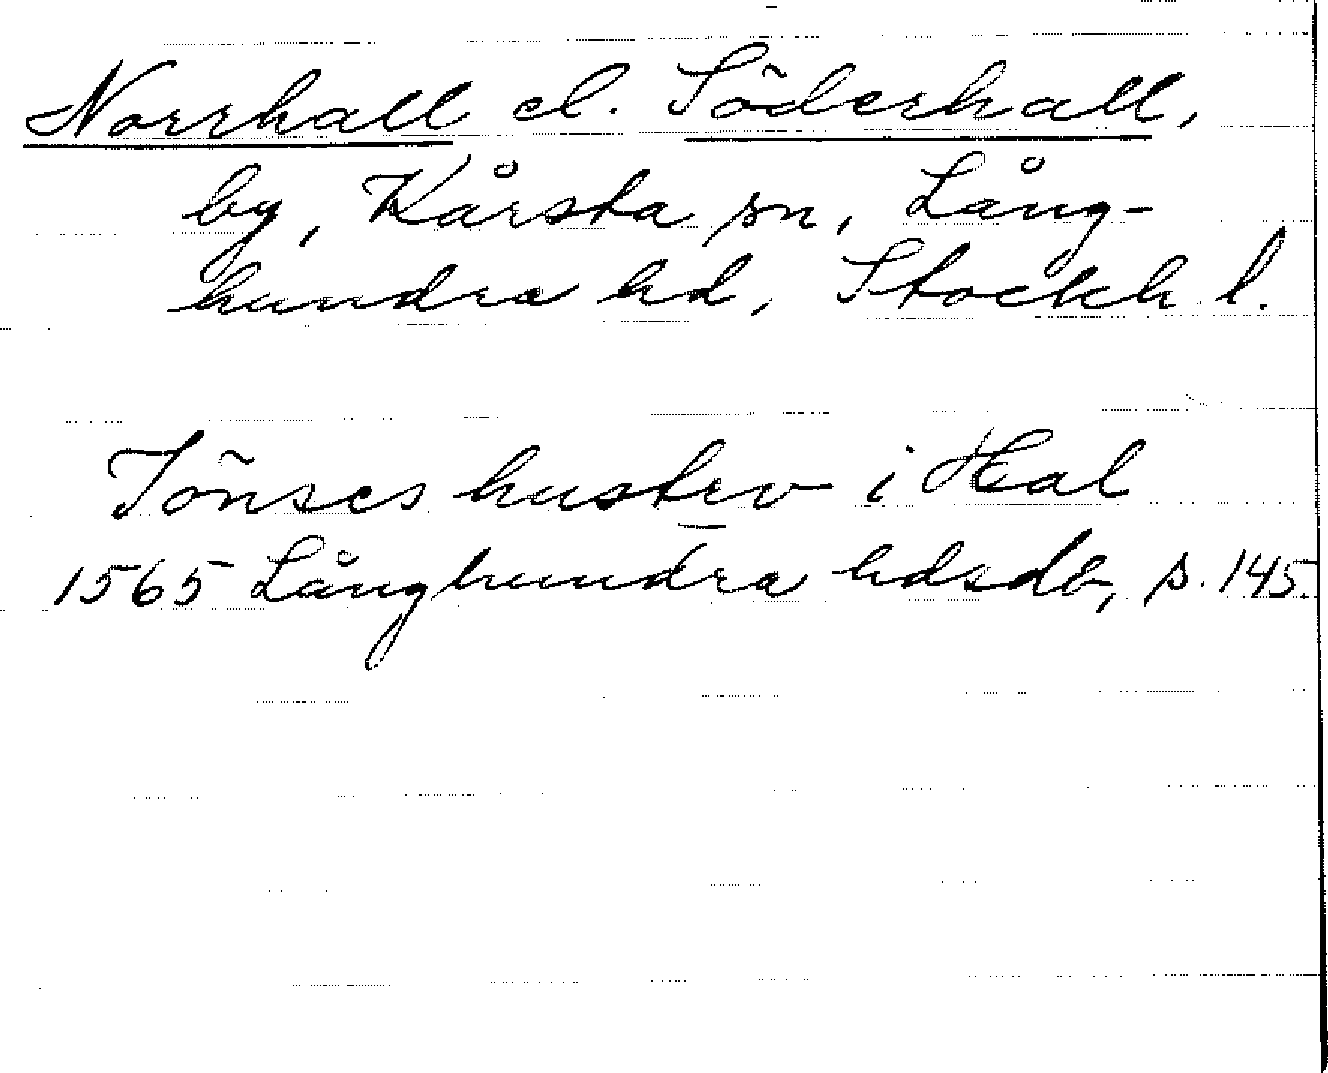 Norrhall el. Söderhall,
by, Kårsta sn, Lång-
hundra hd, Stockh. l.
Jönses hustrv i Hal
1565 Långhundra hdsdb, s. 145.